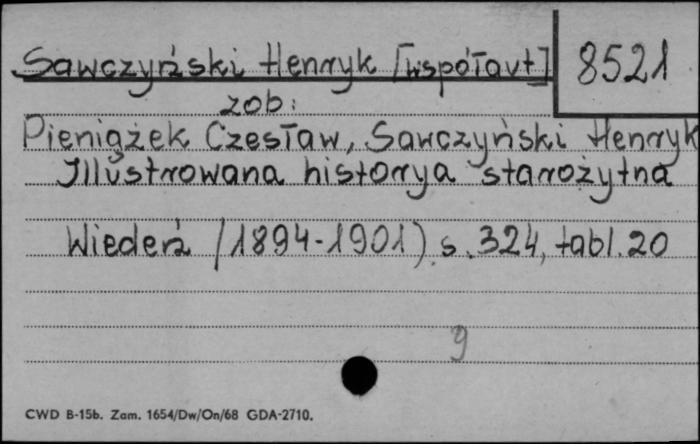 Sawczyński Henryk [współaut] 8521
zob:
Pieniążek Czesław, Sawczyński Henryk
Illustrowana historya starożytna
Wiedeń (1894-1901) s. 324, tabl. 20
9
CWD B-15b. Zam. 1654/Dw/On/68 GDA-2710.